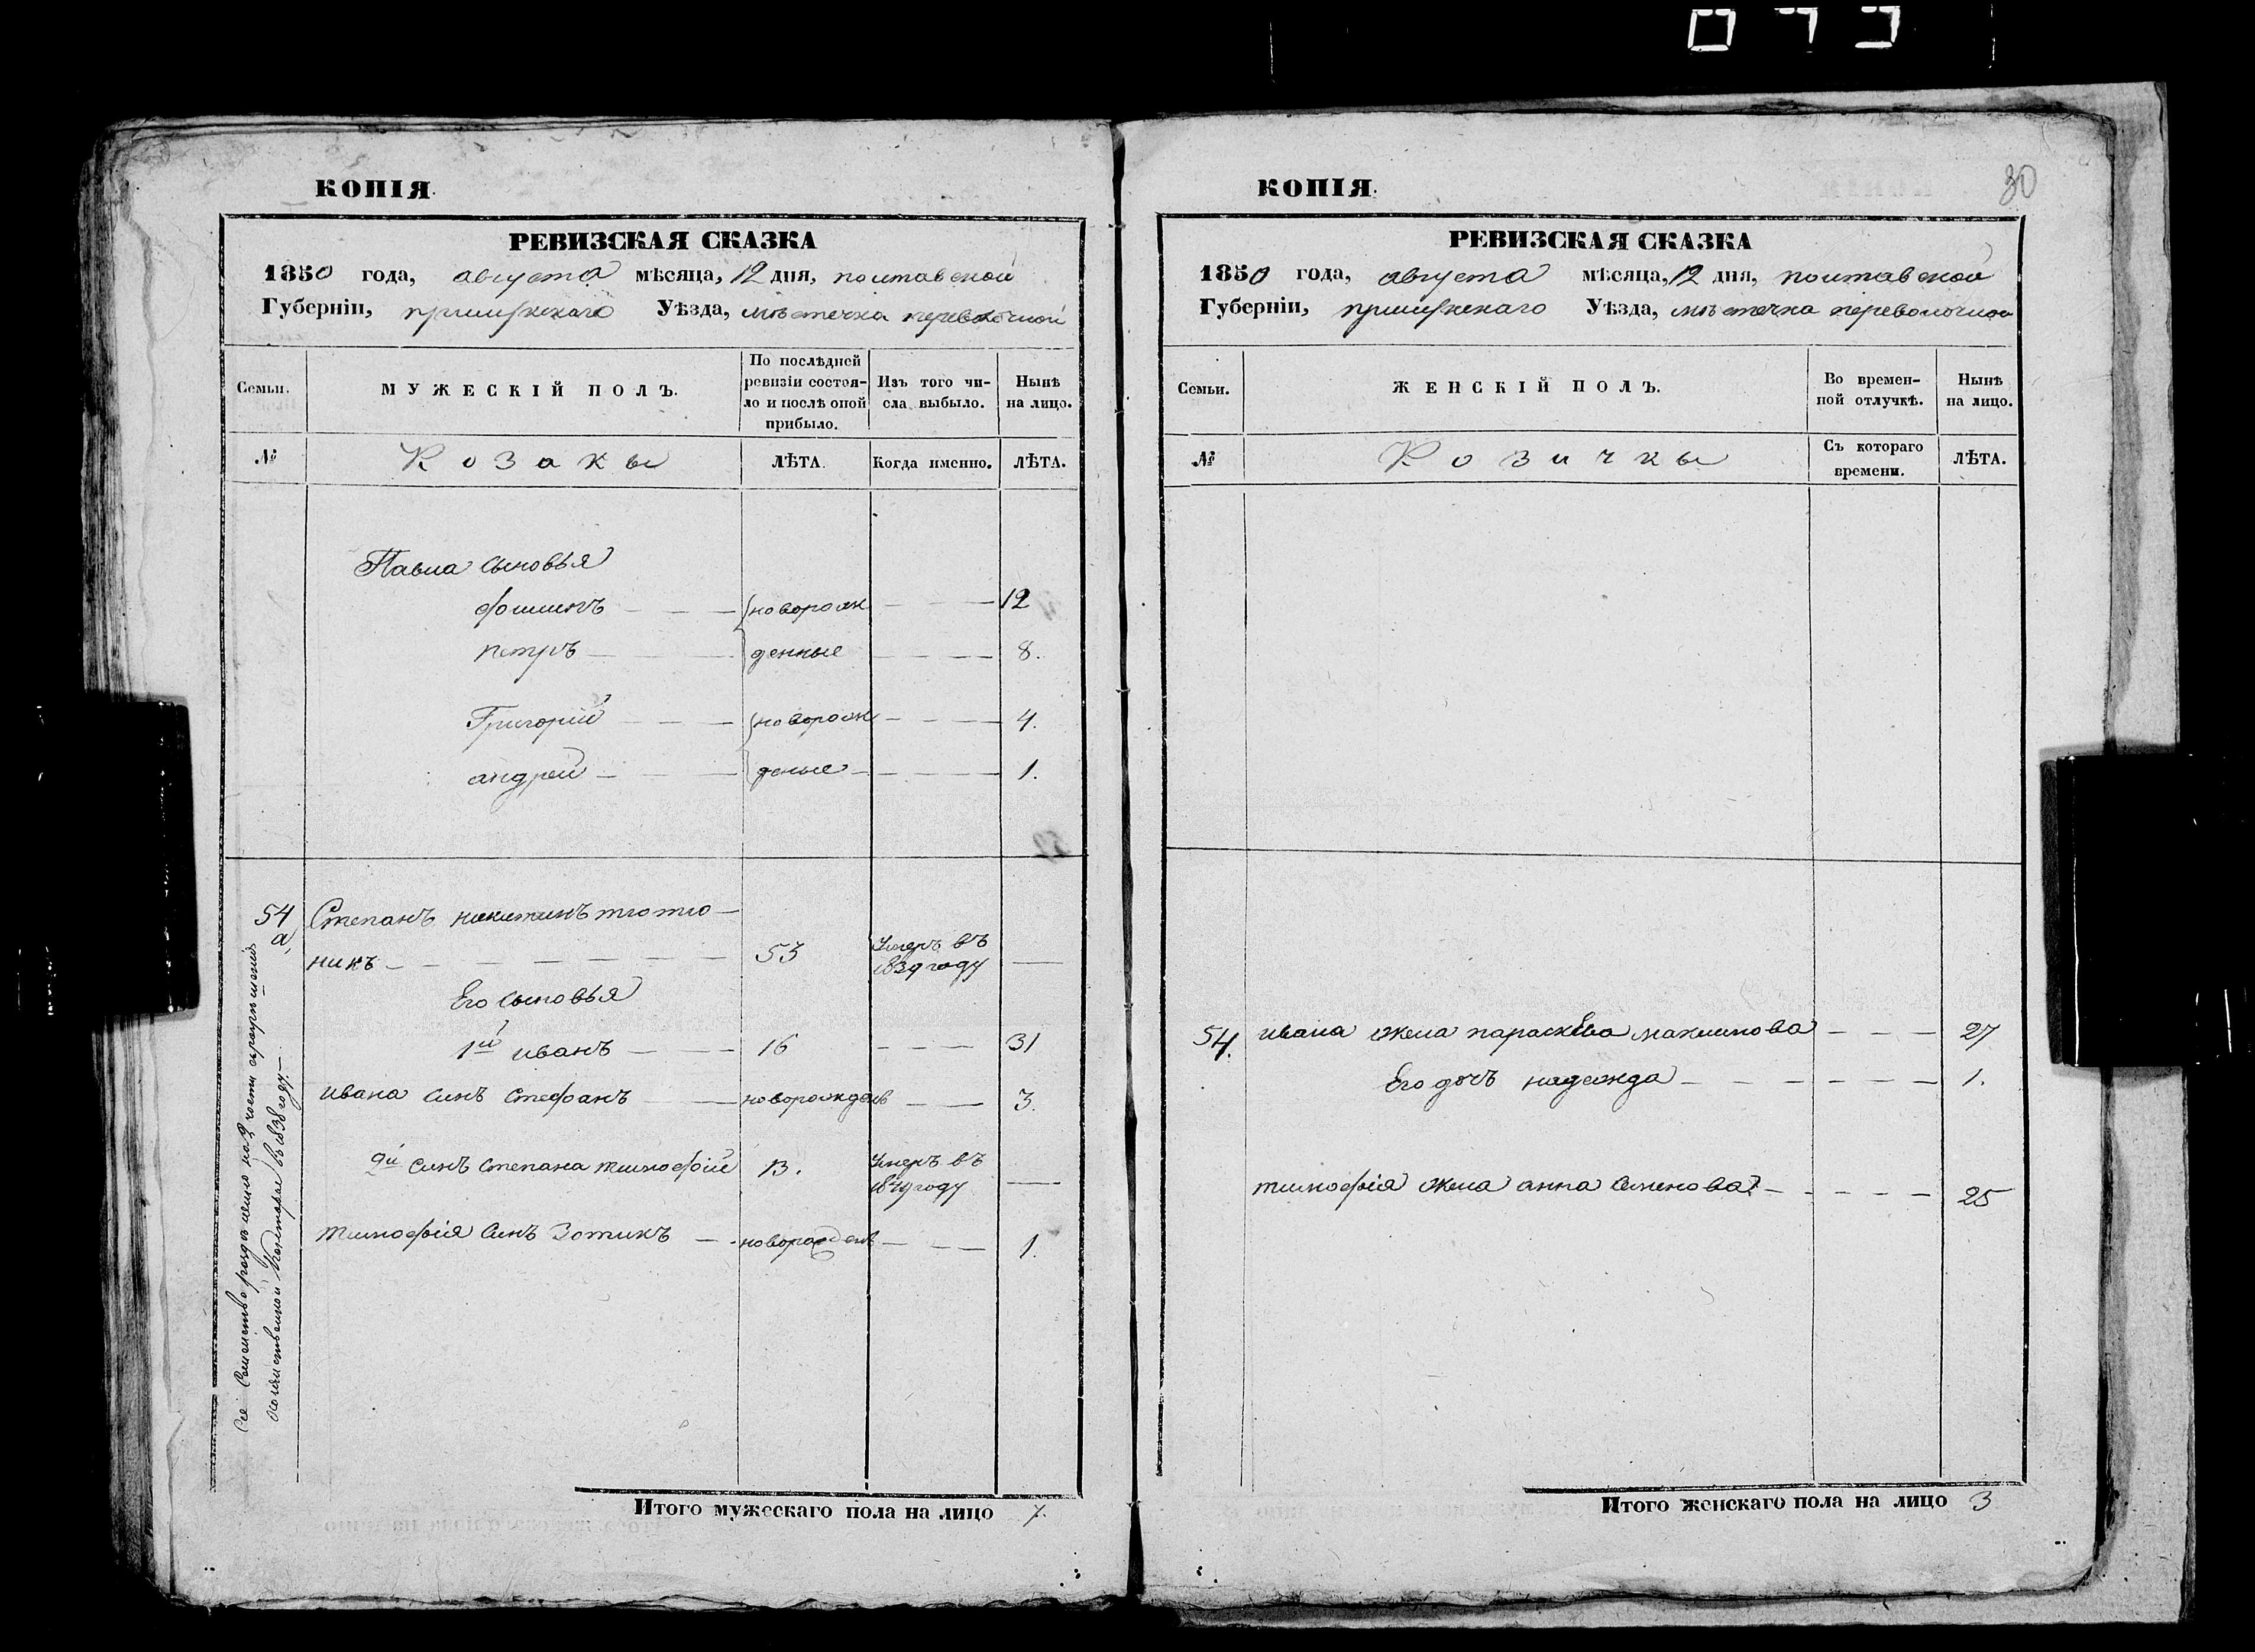 КОПІЯ.
РЕВИЗСКАЯ СКАЗКА
1850 года, августа мѣсяца, 12 дня, полтавской
Губерніи, прилукскаго Уѣзда, мѣстечка переволочной
Семьи.
МУЖЕСКІЙ ПОЛЪ.
По послѣдней
ревизіи состоя-
ло и послѣ оной
прибыло.
Изъ того чи-
сла выбыло.
Нынѣ
на лицо.
№
Козаки
ЛѢТА.
Когда именно.
ЛѢТА.
Павла сыновья
новорож 12
петръ денные 8.
Григорий новорож 4.
андрей деные 1.
54 Степанъ никитинъ тютю-
а,
никъ 53 Умеръ въ
1839 году
Его сыновья
1й иванъ 16 31
ивана синъ Стефанъ новорожденъ 3.
2й синъ степана тимофій 13. Умеръ въ
1849 году
тимофія синъ Зотикъ новорожденъ 1.
Сіе Семейство раздѣлено на 2 части разрѣшенія
Итого мужескаго пола на лицо 7.
КОПІЯ.
30
РЕВИЗСКАЯ СКАЗКА
1850 года, августа мѣсяца, 12 дня, полтавской
Губерніи, прилукскаго Уѣзда, мѣстечка переволочной
Семьи.
ЖЕНСКІЙ ПОЛЪ.
Во времен-
ной отлучкѣ.
Нынѣ
на лицо.
№
Козички
Съ котораго
времени.
ЛѢТА.
54. ивана жена параскева максимова 27
Его дочъ надежда 1.
тимофія жена анна Семенова 25
Итого женскаго пола на лицо 3